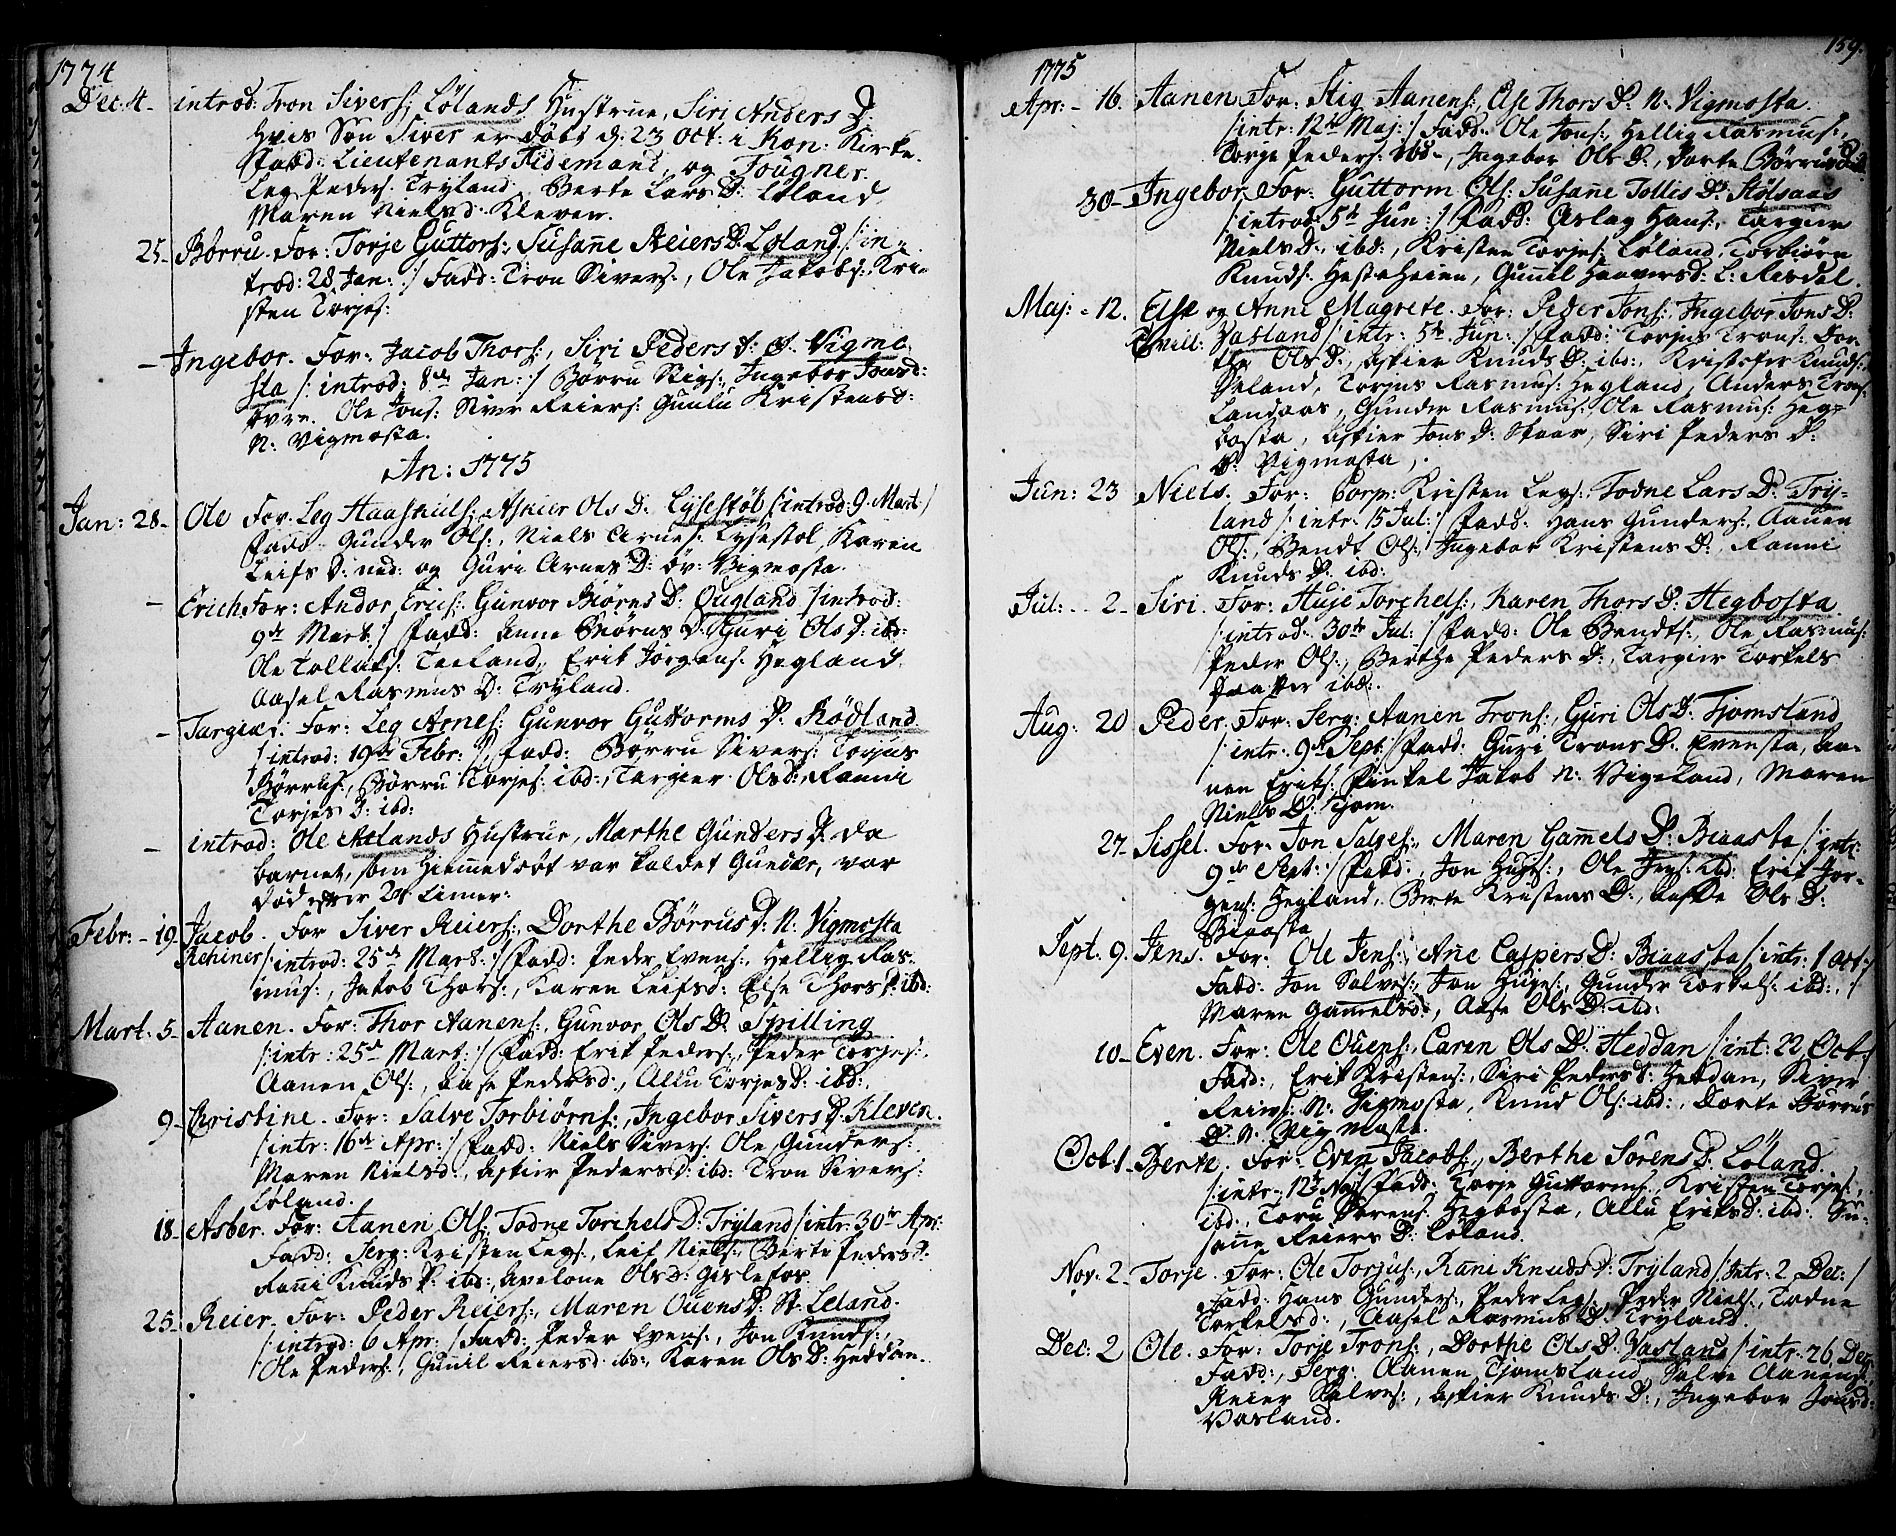 1774
Dec: 4- introd: Tron Sivers: Lølands Hustrue, Siri Anders D:
Hvis Søn Siver er døbt d: 23 Oct: i Kon: Kirke.
Fadd: Lieutenants Tidemand, og Fougner.
Leg Peders: Tryland, Berte Lars D: Løland
Maren Nielsd: Kleven.
25- Børru. For: Torje Guttors:, Susane Reiers D: Løland /: in-
trod: 28 Jan: :/ Fadd: Tron Sivers:, Ole Jakobs:, Kri-
sten Torjes:
- Ingebor. For: Jacob Thors:, Siri Peders D: Ø. Vigmo-
sta /: introd: 8de Jan: :/ Børru Stigs:, Ingebor
øvre. Ole Jons: Siver Reiers: Gunlu Kristensd:
N: Vigmosta.
An: 1775
Jan: 28- Ole For: Leg Haaskiils: Askier Ols D: Lysestøl /: introd: 9. Mart :/
Fadd: Gunder Ols:, Niels Arnes: Lysestøl, Karen
Leifs D: ned: og Guri Arnes D: øv: Vigmosta.
- Erich. For: Andor Erics: Gunvor Biørns D: Ougland /: introd:
9de Mart: :/ Fadd: Anne Biørns D: Guri Ols D: ibd:
Ole Tollafs: Teeland, Erik Jørgens: Hegland,
Aasel Rasmus D: Tryland.
- Targier: For: Leg Arnes: Gunvor Guttorms D: Rødland
/: introd: 19de Febr: :/ Fadd: Børru Sivers: Torjus
Børrus:, Børru Torjes: ibd:, Targier Ols D:, Ranni
Torjes D: ibd:
- introd: Ole Hustrue, Marthe Gunders D: da
barnet, som Hiemmedøbt var kaldet Gunder, var
død efter 24 Timer:
Febr: - 19. Jacob. For: Siver Reiers:, Dorthe Børrus D: N: Vigmosta
/: introd: 25de Mart: :/ Fadd: Peder Evens:, Hellig Ras-
mus:, Jakob Thors:, Karen Leifsd: Else Thors D: ibd:
Mart: 5- Aanen. For: Thor Aanens:, Gunvor Ols D: Spilling
/: intr: 25de Mart: :/ Fadd: Erik Peders:, Peder Torjes:,
Aanen Ols:, Aase Pedersd:, Allu Torjes D: ibd:
9- Christine. For: Salve Torbiørns:, Ingebor Sivers D: Kleven.
/: intr: 16de Apr: :/ Fadd: Niels Sivers: Ole Gunders:
Maren Nielsd:, Askier Peders D: ibd: Tron Sivers:
Løland.
18- Asber. For: Aanen Ols: Todne Torchels D: Tryland /: intr: 30te Apr:
Fadd: Serg: Kristen Legs:, Leif Niels: Berte Peders D:
Rani Knuds D: ibd:, Ols D: Gislefos
25- Reier. For: Peder Reiers:, Maren Ouens D: St: Leland.
/: introd: 6 Apr: :/ Fadd: Peder Evens:, Jon Knuds:,
Ole Peders:, Gunil Reiersd: ibd:, Karen Ols D: Heddan.
159.
1775
Apr: - 16. Aanen. For: Stig Aanens:, Else Thors D: N: Vigmosta.
/: intr: 12te Maj: :/ Fadd: Ole Jons:, Hellig Rasmus:,
Torje Peders: ibd:, Ingebor Ols D:, Dorte Børrus D:
30- Ingebor. For: Guttorm Ols: Susane Tollis D: Stølsaas
/: introd: 5te Jun: :/ Fadd: Aslag Hans:, Targier
Niels D: ibd:, Kristen Torjes: Løland, Torbiørn
Knuds: Hesteheien, Gunil Haavarsd: L: Risdal.
Maj: - 12. Else og Anne Magrete. For: Peder Jons:, Ingebor Jons D:
Tvill: Vasland /: intr: 5te Jun: :/ Fadd: Torjus Trons: Dor-
the Ols D:, Askier Knuds D: ibd:, Kristofer Knuds:
Torjus Rasmus: Hegland, Anders Trons:
Landaas, Gunder Rasmus: Ole Rasmus: Heg-
bosta, Askier Jons D: Siri Peders D:
D: Vigmosta,
Jun: 23 Niels. For: Corp: Kristen Legs:, Todne Lars D: Try-
land /: intr: 15 Jul: :/ Fadd: Hans Gunders:, Aanen
Ols:, Bendt Ols:, Ingebor Kristens D:, Ranni
Knuds D: ibd:
Jul: - 2- Siri. For: Huje Torchels:, Karen Thors D: Hegbosta
/: introd: 30te Jul: :/ Fadd: Ole Bendts:, Ole Rasmus:
Peder Ols:, Berthe Peders D:, Targier Torkels
Daatter ibd:.
Aug: 20 Peder. For: Serg: Aanen Trons:, Guri Ols D: Tjomsland
/: intr: 9de Sept: :/ Fadd: Guri Trons D: Evensta, Aa-
nen Eriks: Finkel Jakob n: Vigeland, Maren
Niels D: Tjom.
27- Sissel. For: Jon Salves:, Maren Gamels D: Biaasta /: intr:
9de Sept: :/ Fadd: Jon Hujes:, Ole Jens: ibd: Erik Jør-
gens: Hegland, Berte Kristens D:, Ols D:
Biaasta
Sept: 9. Jens. For: Ole Jens:, Ane Caspers D: Biaasta /: intr: 1 Oct: :/
Fadd: Jon Salves:, Jon Hujes:, Gunder Torkels: ibd:,
Maren Gamelsd:, Aase Ols D: ibd:
10- Even. For: Ole Ouens:, Caren Ols D: Heddan /: int: 22 Oct:
Fadd:, Erik Kristens:, Siri Peders D: Heddan, Siver
Reiers: N: Vigmosta, Knud Ols: ibd:, Dorte Børrus
D: N: Vigmosta.
Oct: 1- Berte. For: Even Jacobs:, Berthe Sørens D: Løland
/: intr: 12te Nov: :/ Fadd: Torje Guttorms:, Kristen Torjes:,
ibd:, Toru Sørens: Hegbosta, Allu Eriksd: ibd: Su-
sane Reiers D: Løland.
Nov: 2- Torje. For: Ole Torjus:, Rani Knuds D: Tryland /: Intr: 2 Dec: :/
Fadd: Hans Gunders:, Peder Legs:, Peder Niels:, Todne
Torkelsd:, Aasel Rasmus D: Tryland.
Dec: 2 Ole. For: Torje Trons:, Dorthe Ols D: Vasland /: intr: 26 Dec:
Fadd:, Serg: Aanen Tjomsland, Salve Aanens:,
Reier Salves:, Askier Knuds D:, Ingebor Jonsd:
Vasland.